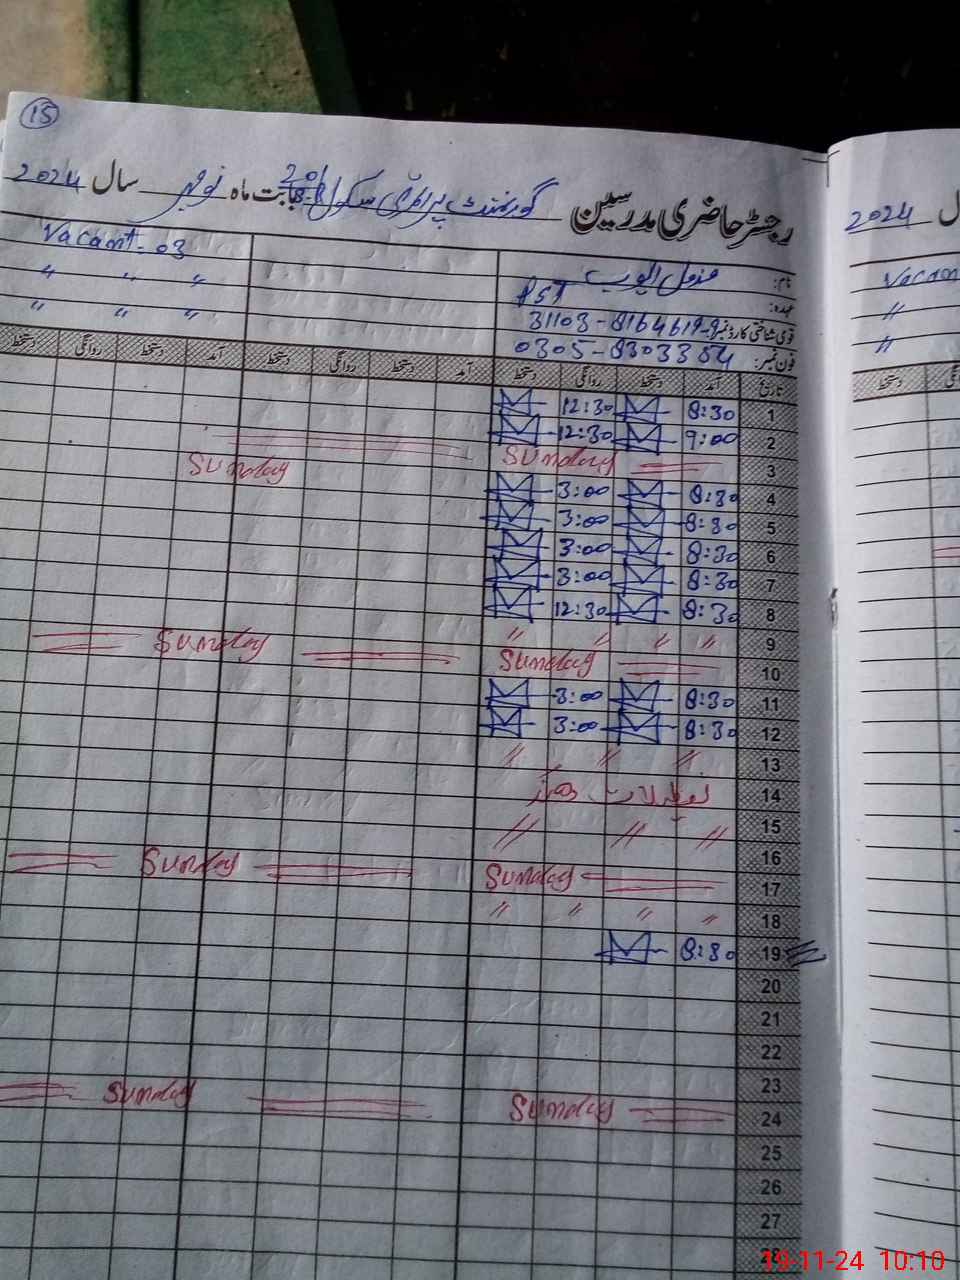 15
رجسٹر حاضری مدرسین گورنمنٹ پرائمری سکول 201 8-R بابت ماہ نومبر سال 2024
نام: مزمل ایوب
عہدہ: PST
قومی شناختی کارڈ نمبر: 31103-8164619-9
فون نمبر: 0305-8303354
Vacant-03
" " "
" " "
تاریخ آمد دستخط روانگی دستخط آمد دستخط روانگی دستخط آمد دستخط روانگی دستخط
1 8:30 12:30
2 9:00 12:30
3 Sunday Sunday
4 8:30 3:00
5 8:30 3:00
6 8:30 3:00
7 8:30 3:00
8 8:30 12:30
9 " " " "
10 Sunday Sunday
11 8:30 3:00
12 8:30 3:00
13 " " "
14
15 " " "
16
17 Sunday Sunday
18 " " " "
19 8:30
20
21
22
23
24 Sunday Sunday
25
26
27
2024
Vacan
"
"
دستخط
19-11-24 10:10